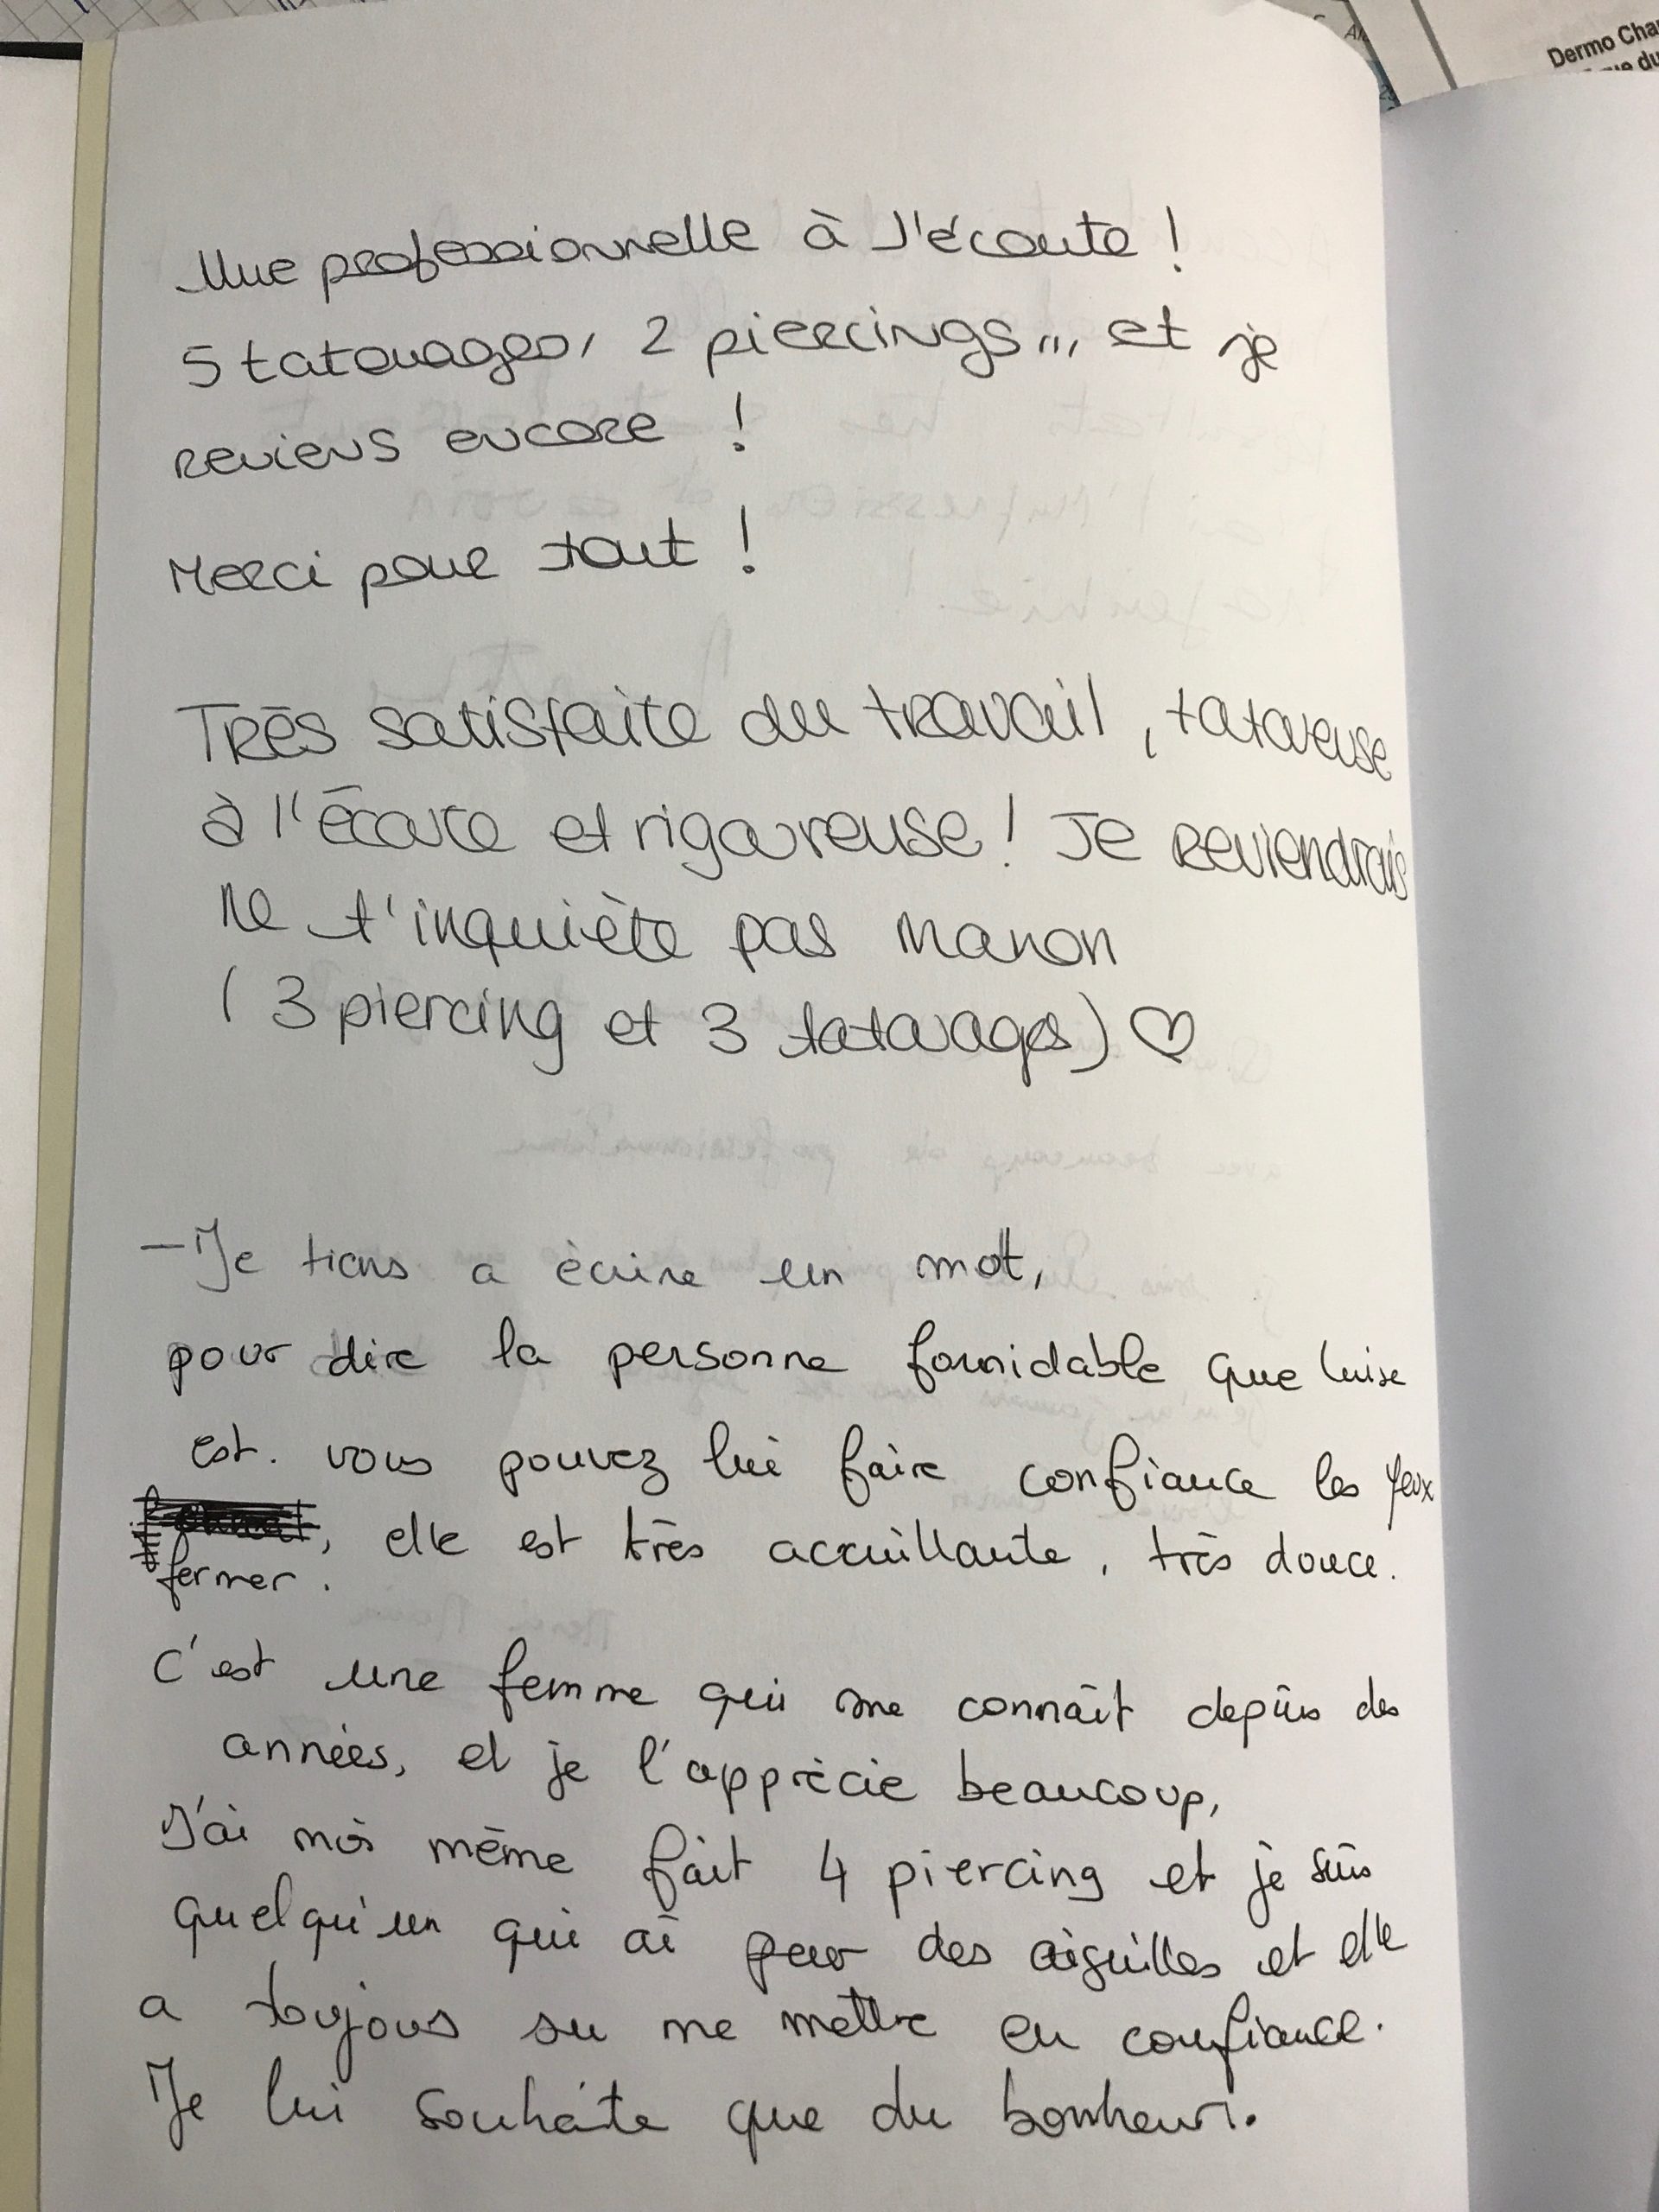 Une professionnelle à l'écoute !
5 tatouages, 2 piercings... et je
reviens encore !
Merci pour tout !
Très satisfaite du travail, tatoueuse
à l'écoute et rigoureuse ! Je reviendrais
ne t'inquiète pas Manon
( 3 piercing et 3 tatouages) ♡
— Je tiens a écrire un mot,
pour dire la personne formidable que Luise
est. vous pouvez lui faire confiance les yeux
, elle est très accuillante, très douce.
fermer.
C'est une femme qui me connaît depuis des
années, et je l'apprécie beaucoup,
J'ai moi même fait 4 piercing et je suis
quelqu'un qui ai peur des aiguilles et elle
a toujours su me mettre en confiance.
Je lui souhaite que du bonheur.
Dermo Cha